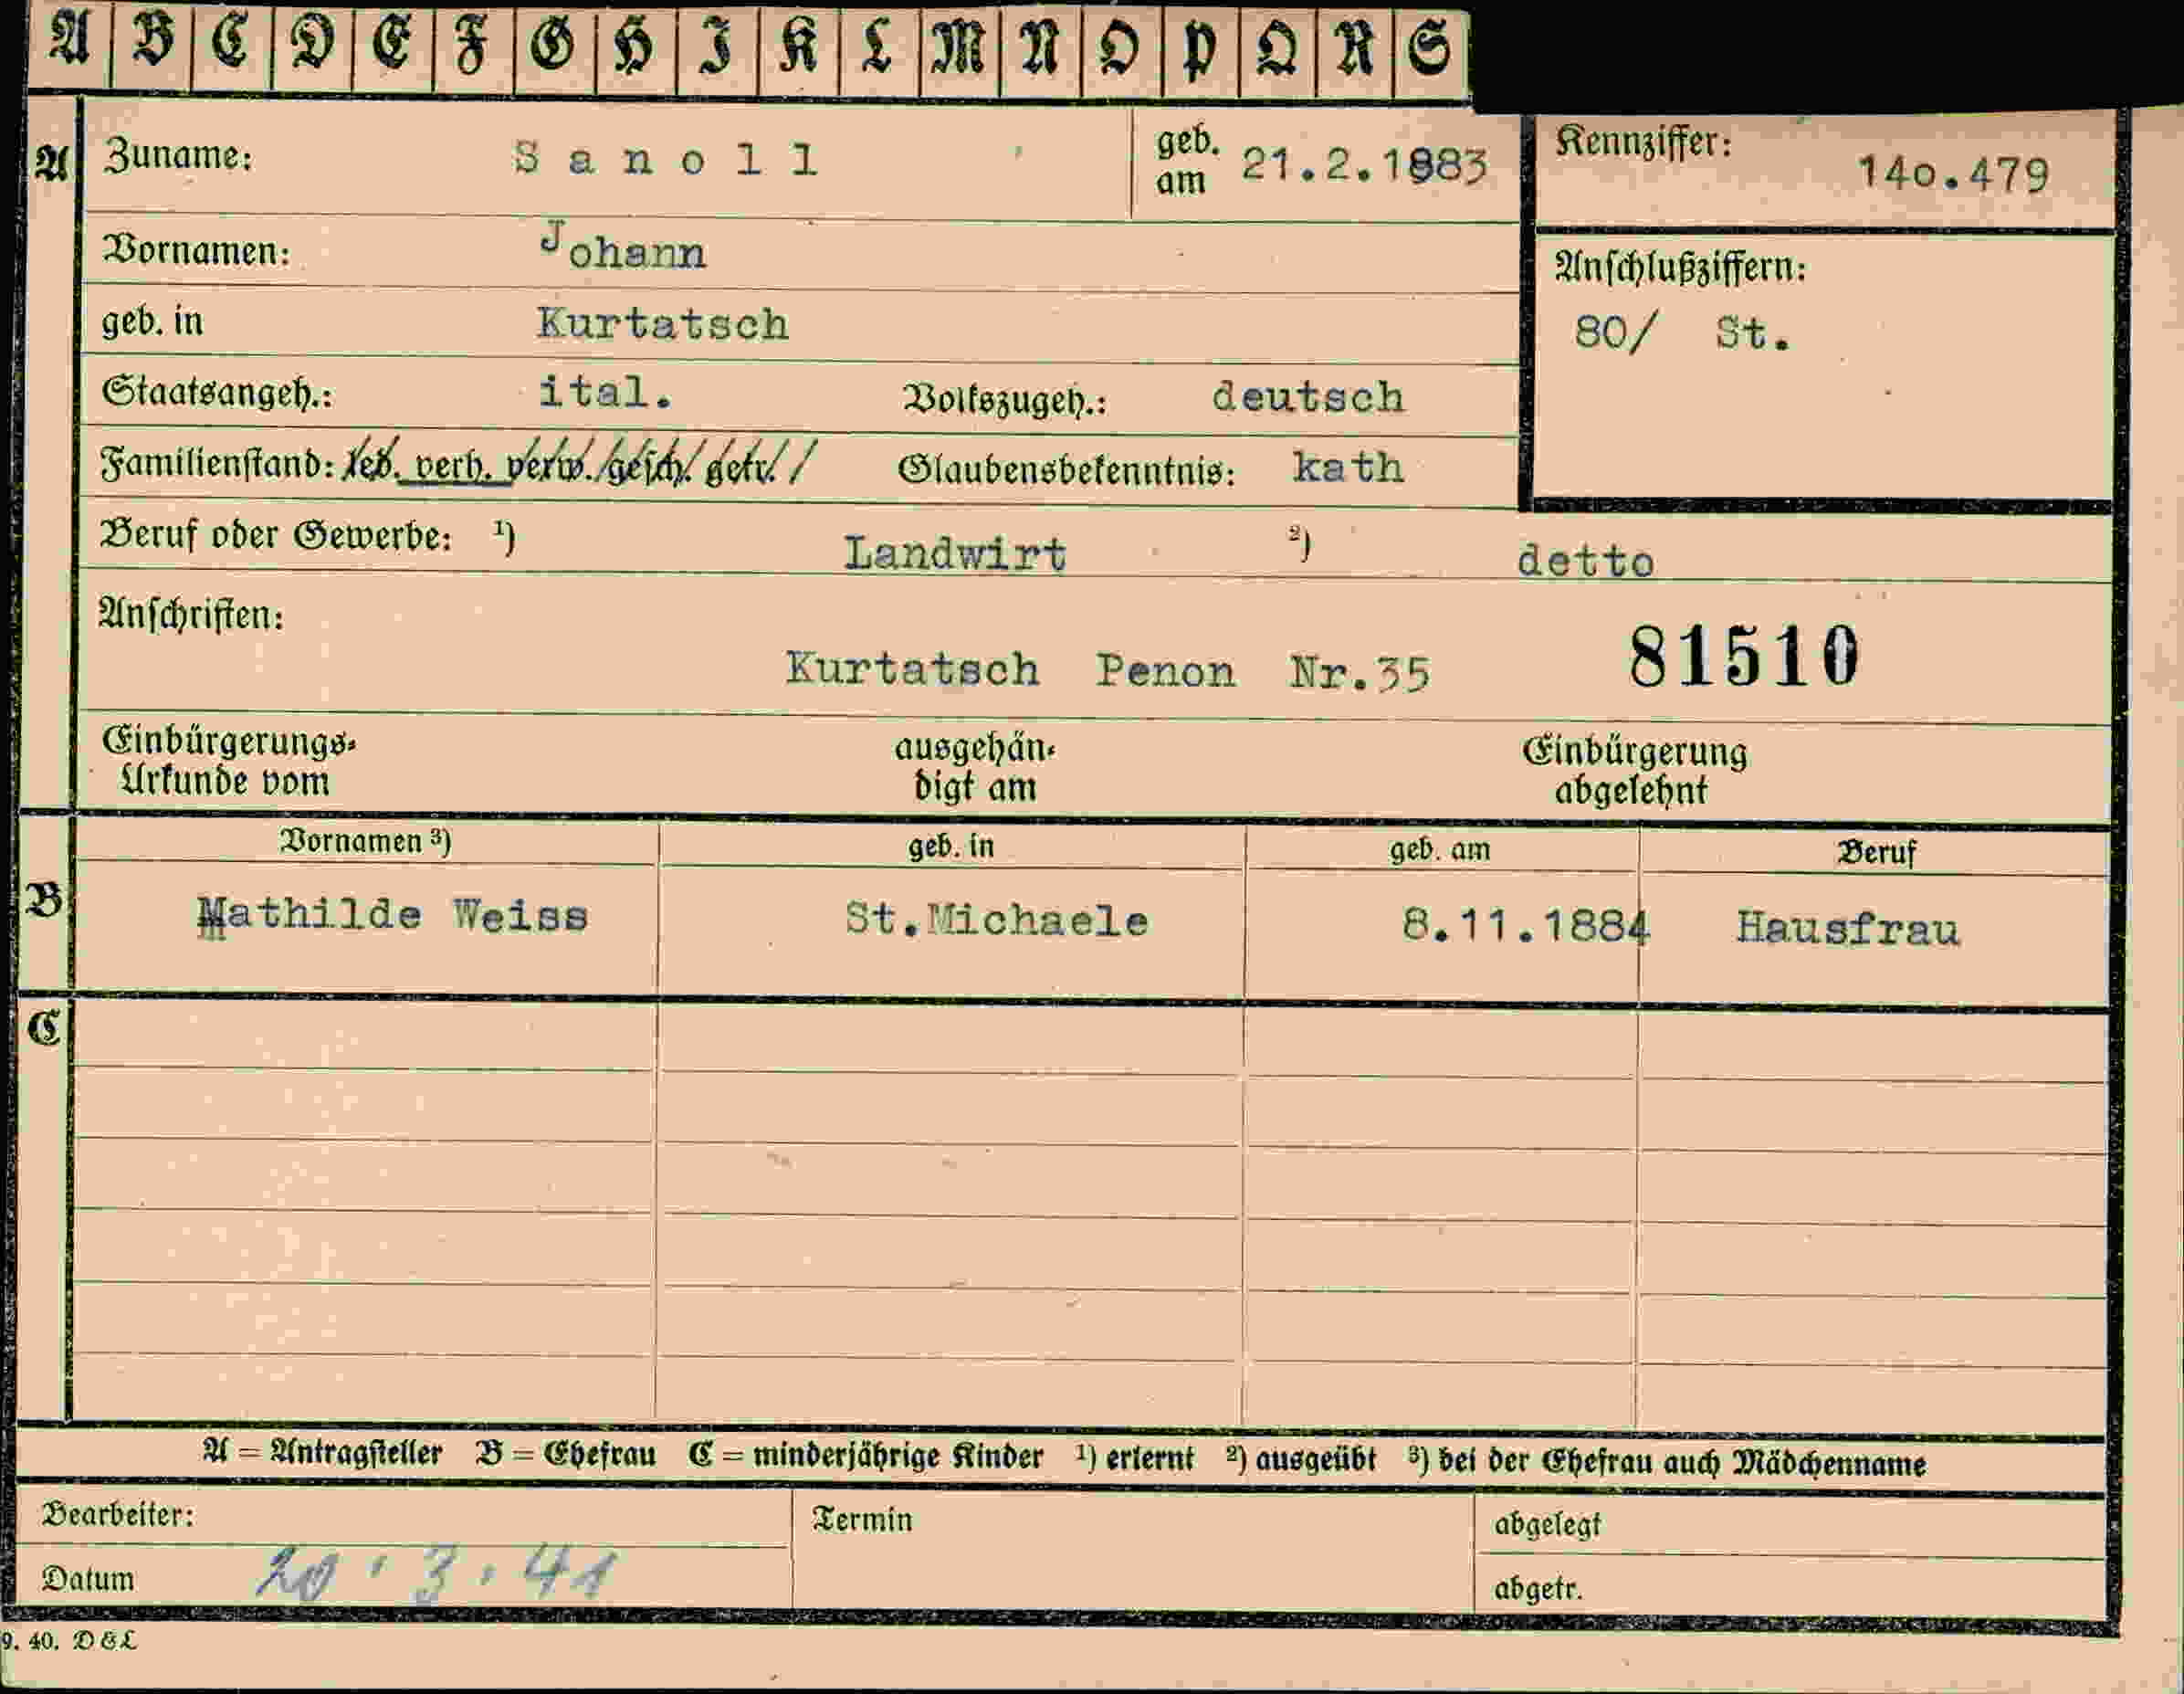 A B C D E F G H I K L M N O P Q R S
A Zuname: Sanoll geb. am 21.2.1883 Kennziffer: 14o.479
Vornamen: Johann Anschlußziffern:
geb. in Kurtatsch 80/ St.
Staatsangeh.: ital. Volkszugeh.: deutsch
Familienstand: led. verh. verw. gesch. getr. Glaubensbekenntnis: kath
Beruf oder Gewerbe: 1) Landwirt 2) detto
Anschriften:
Kurtatsch Penon Nr.35 81510
Einbürgerungs-
Urkunde vom
ausgehän-
digt am
Einbürgerung
abgelehnt
Vornamen 3) geb. in geb. am Beruf
B Mathilde Weiss St.Michaele 8.11.1884 Hausfrau
C
A = Antragsteller B = Ehefrau C = minderjährige Kinder 1) erlernt 2) ausgeübt 3) bei der Ehefrau auch Mädchenname
Bearbeiter: Termin abgelegt
Datum 20.3.41 abgetr.
9. 40. D & L